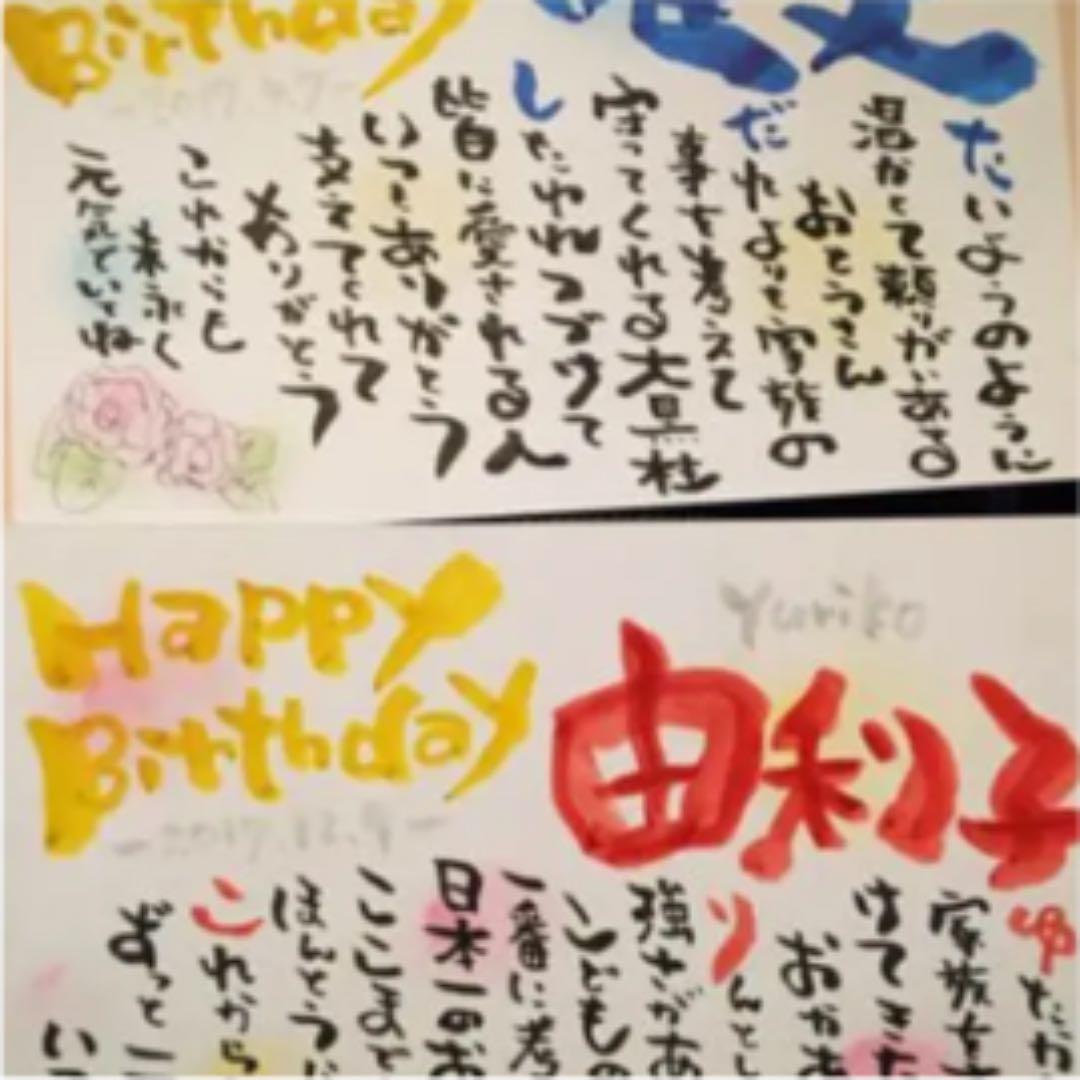 Birthday
2017.4.7
たいようのように
温かくて頼りがいある
おとうさん
だれよりも家族の
事を考えて
守ってくれる大黒柱
したわれつづけて
皆に愛される人
いつもありがとう
支えてくれて
ありがとう
これからも
末永く
元気でいてね
Happy
Birthday
2017.12.9
Yuriko
由利子
ゆたか
家族を
けてきた
おかあ
りんとし
強さがあ
こどもの
一番に考
日本一のお
ここまで
ほんとうに
これから
ずっと
いつ